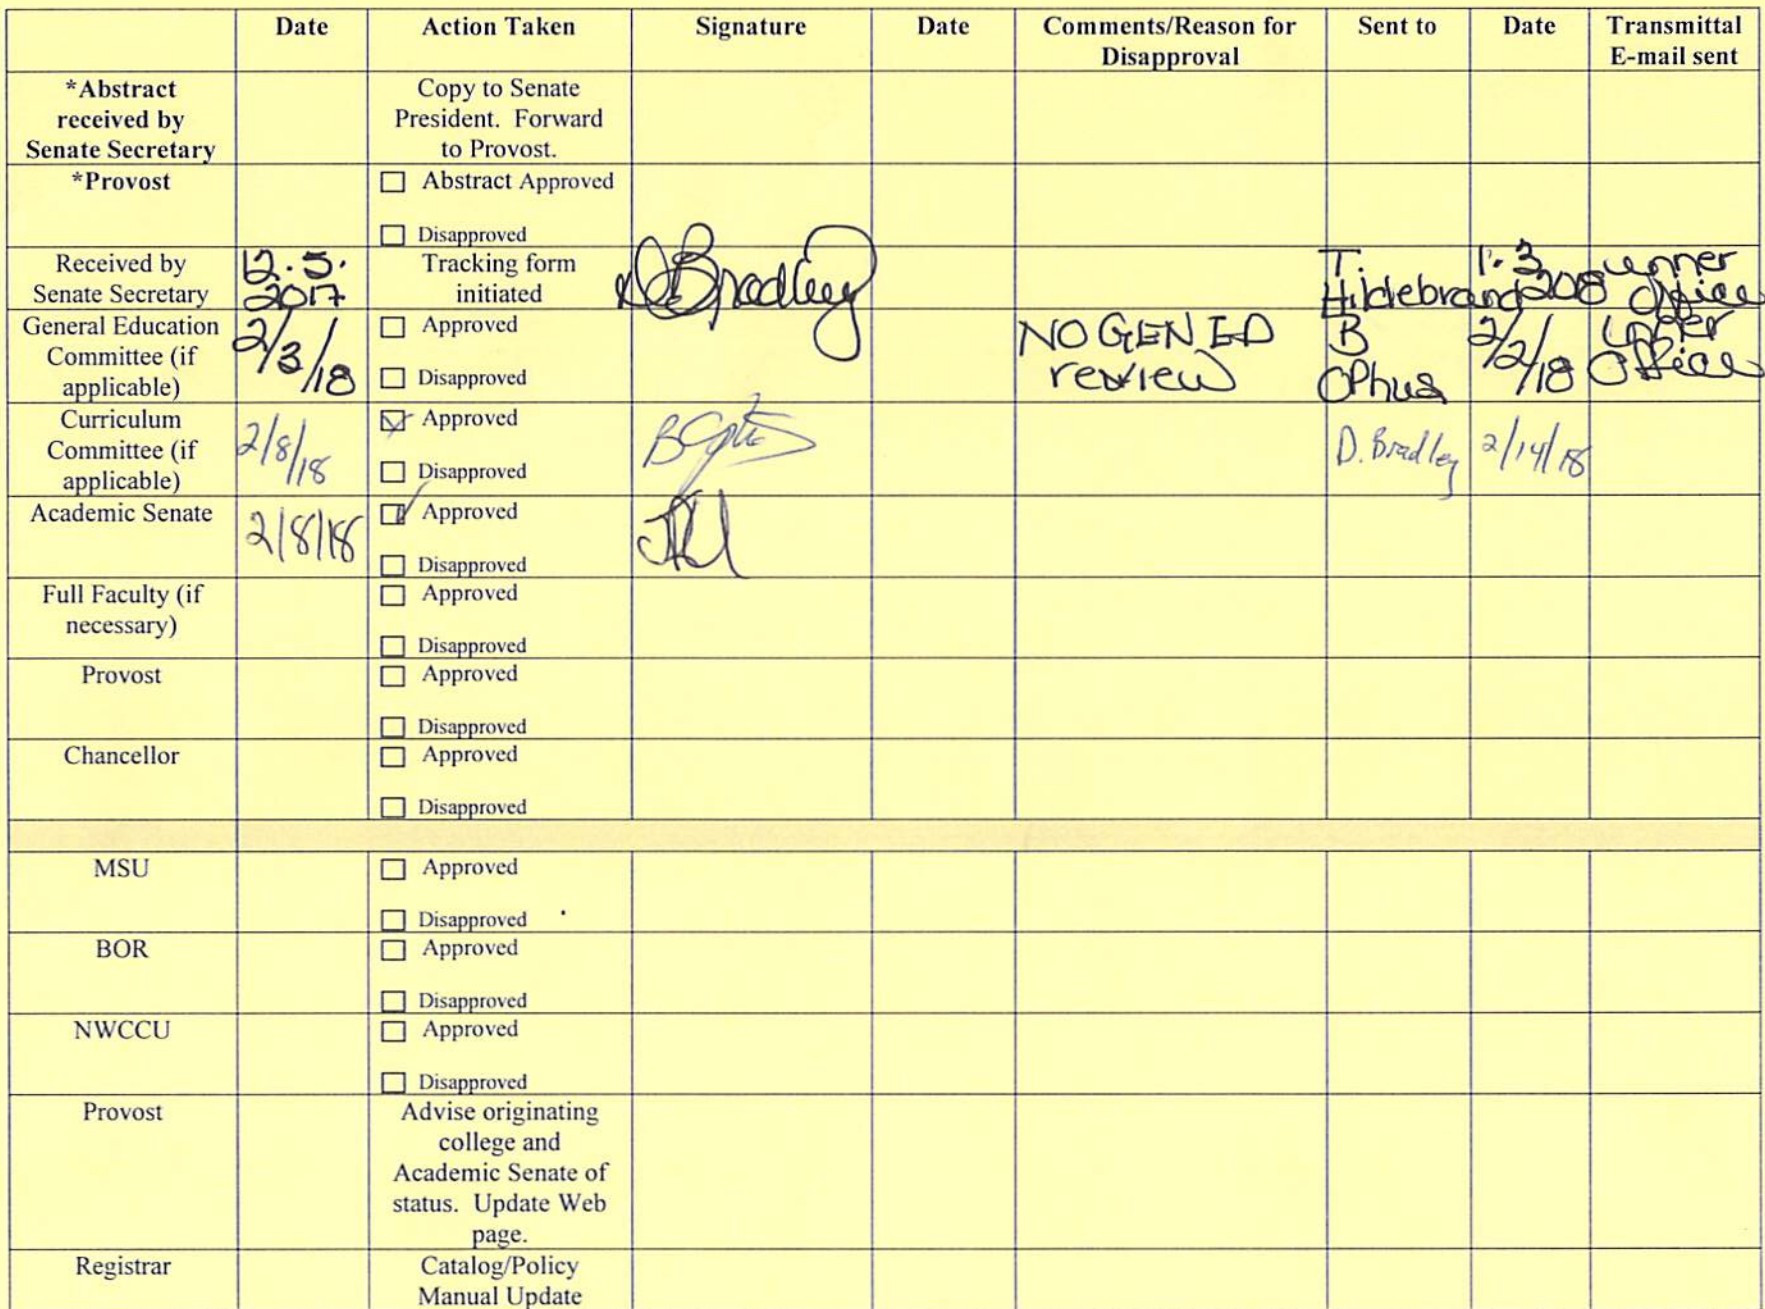 Date Action Taken Signature Date Comments/Reason for Sent to Date Transmittal
Disapproval E-mail sent
*Abstract
received by
Senate Secretary
Copy to Senate
President. Forward
to Provost.
*Provost
Abstract Approved
Disapproved
Received by
Senate Secretary
12.5.
2017
Tracking form
initiated
DBradley
T
Hildebrand
1.3
208
Office
General Education
Committee (if
applicable)
2/3/18
Approved
Disapproved
NO GEN ED
review
B
Ophus
2/2/18
Office
Curriculum
Committee (if
applicable)
2/8/18
Approved
Disapproved
D. Bradley
2/14/18
Academic Senate
2/8/18
Approved
Disapproved
Full Faculty (if
necessary)
Approved
Disapproved
Provost
Approved
Disapproved
Chancellor
Approved
Disapproved
MSU
Approved
Disapproved
BOR
Approved
Disapproved
NWCCU
Approved
Disapproved
Provost
Advise originating
college and
Academic Senate of
status. Update Web
page.
Registrar
Catalog/Policy
Manual Update